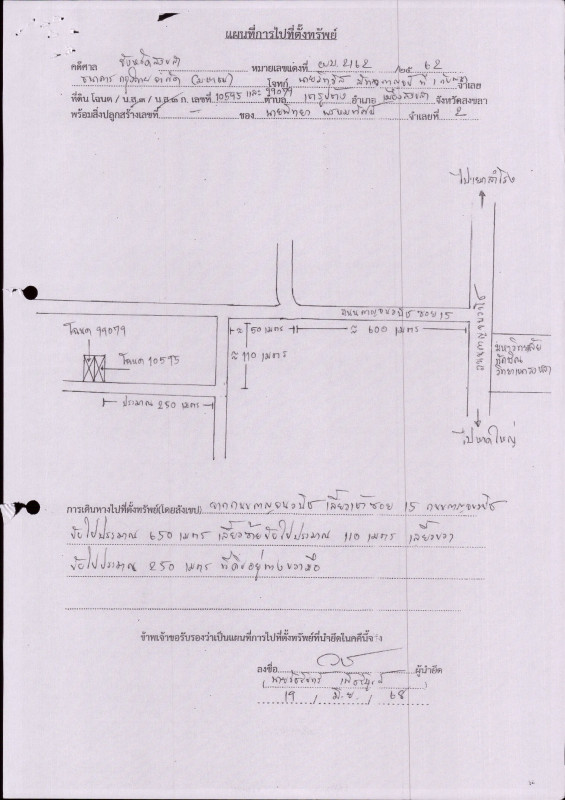 แผนที่การไปที่ตั้งทรัพย์
คดีศาล จังหวัดสงขลา หมายเลขแดงที่ ผบ. 2162 /๒๕ 62
ธนาคาร กรุงไทย จำกัด (มหาชน) โจทก์ ที่ 1 กับพวก จำเลย
ที่ดิน โฉนด / น.ส.๓ / น.ส.๓ ก. เลขที่ 10595 และ 99079 ตำบล เขารูปช้าง อำเภอ เมืองสงขลา จังหวัดสงขลา
พร้อมสิ่งปลูกสร้างเลขที่ - ของ นายพิทยา จำเลยที่ 2
ไปแยกสำโรง
ถนนกาญจนวนิช ซอย 15
ถนนกาญจนวนิช
≈ 50 เมตร
≈ 600 เมตร
≈ 110 เมตร
โฉนด 99079
โฉนด 10595
มหาวิทยาลัย
ทักษิณ
วิทยาเขตสงขลา
ประมาณ 250 เมตร
ไปหาดใหญ่
การเดินทางไปที่ตั้งทรัพย์(โดยสังเขป) จากถนนกาญจนวนิช เลี้ยวเข้าซอย 15 ถนนกาญจนวนิช
ขับไปประมาณ 650 เมตร เลี้ยวซ้ายขับไปประมาณ 110 เมตร เลี้ยวขวา
ขับไปประมาณ 250 เมตร ที่ดินอยู่ทางขวามือ
ข้าพเจ้าขอรับรองว่าเป็นแผนที่การไปที่ตั้งทรัพย์ที่นำยึดในคดีนี้จริง
ลงชื่อ ผู้นำยึด
19 / มิ.ย. / 68